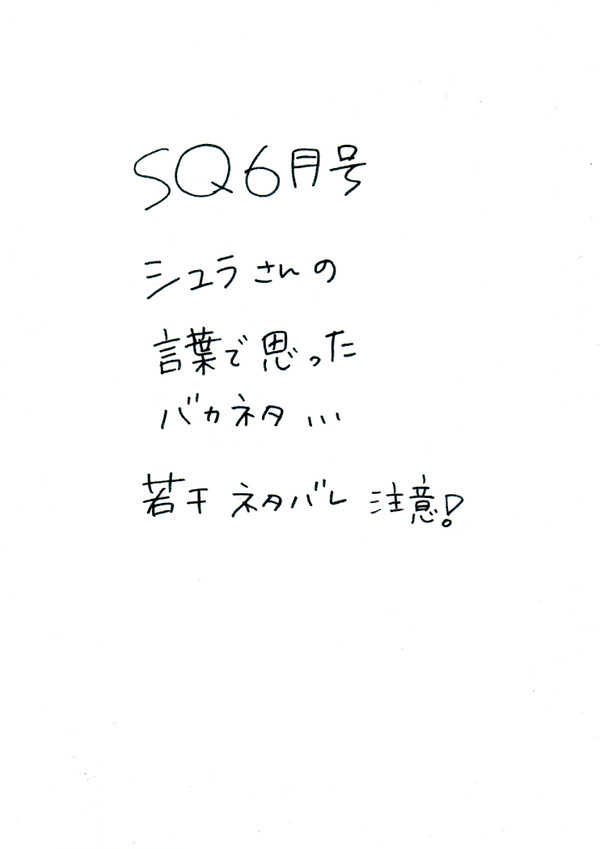 SQ6月号
シュラさんの
言葉で思った
バカネタ...
若干ネタバレ注意!